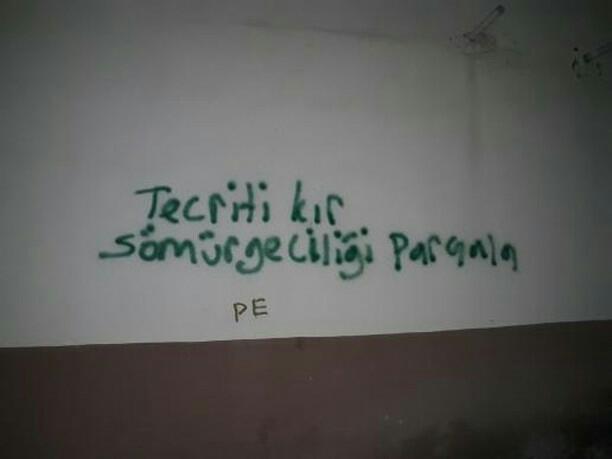 Tecriti kır
sömürgeciliği Parçala
PE